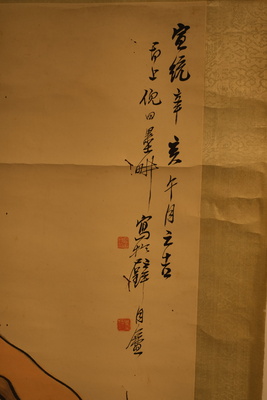 宣統辛亥午月之吉
古上倪田墨畊
寫於
月盦